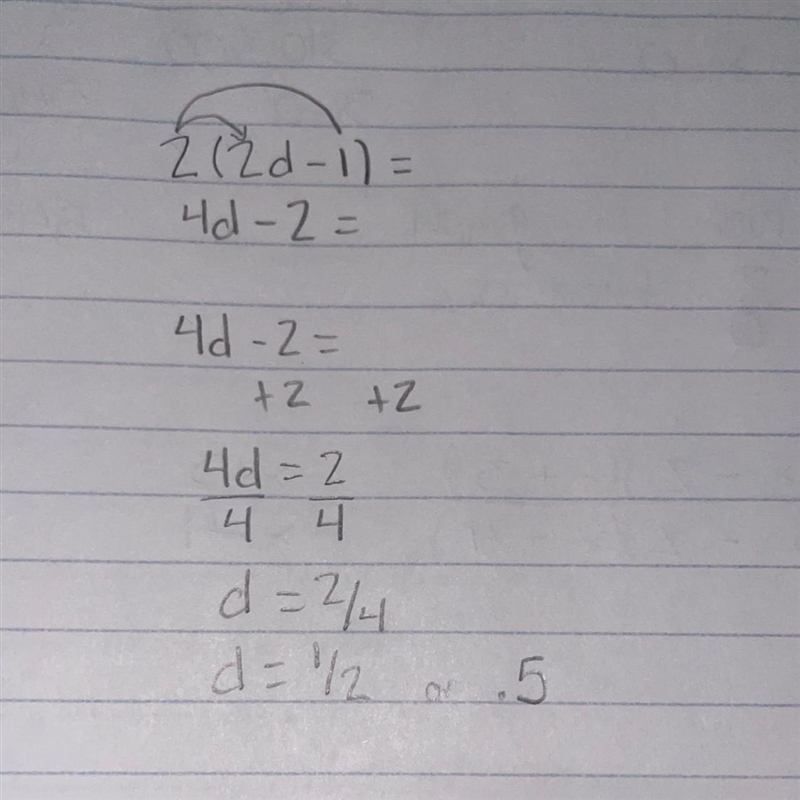 2(2d-1)=
4d-2=
4d-2=
+2 +2
4d = 2
4 4
d = 2/4
d = 1/2 or .5